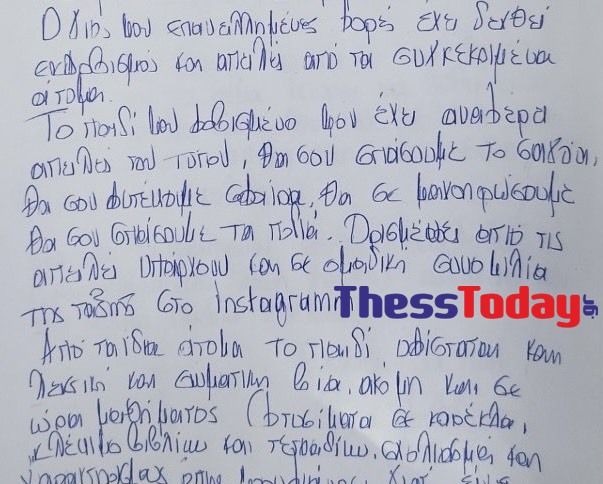 Ο γιός μου επανειλημμένες φορές έχει δεχθεί
εκφοβισμούς και απειλές από τα συγκεκριμένα
άτομα.
Το παιδί μου φοβισμένο μου έχει αναφέρει
απειλές του τύπου, θα σου σπάσουμε το σαγόνι,
θα σου φυτέψουμε σφαίρα, θα σε μαχαιρώσουμε
θα σου σπάσουμε τα πόδια. Ορισμένες από τις
απειλές υπάρχουν και σε ομαδική συνομιλία
της τάξης στο Instagramm
ThessToday.gr
Από τα ίδια άτομα το παιδί υφίσταται και
λεκτική και σωματική βία, ακόμη και σε
ώρα μαθήματος (φτυσίματα σε καρέκλα,
κλέψιμο βιβλίων και τετραδίων, σχολιασμοί και